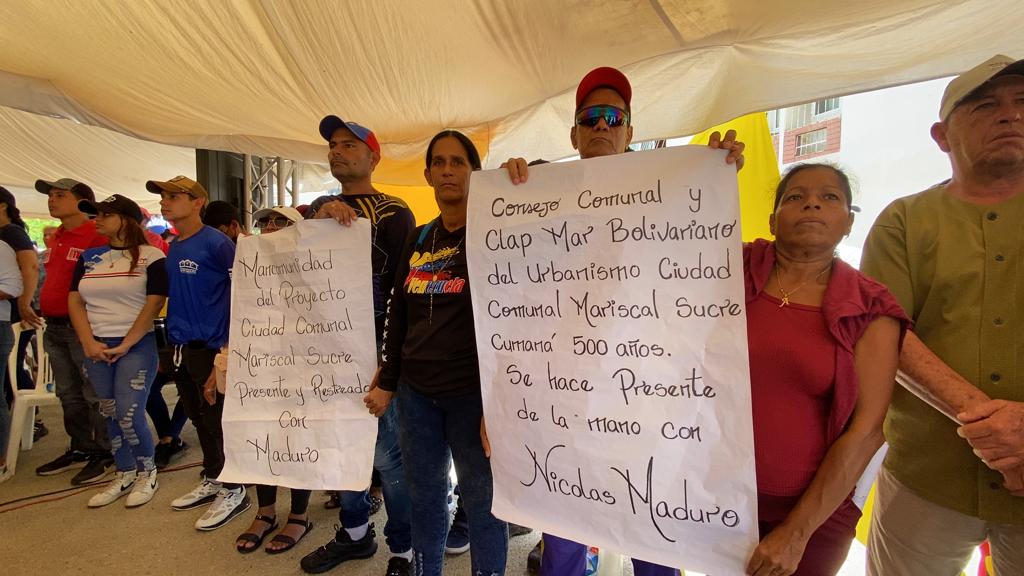 Mancomunidad
del Proyecto
Ciudad Comunal
Mariscal Sucre
Presente y Resteado
Con
Maduro
Consejo Comunal y
Clap Mar Bolivariano
del Urbanismo Ciudad
Comunal Mariscal Sucre
Cumaná 500 años.
Se hace Presente
de la mano con
Nicolas Maduro
Venezuela